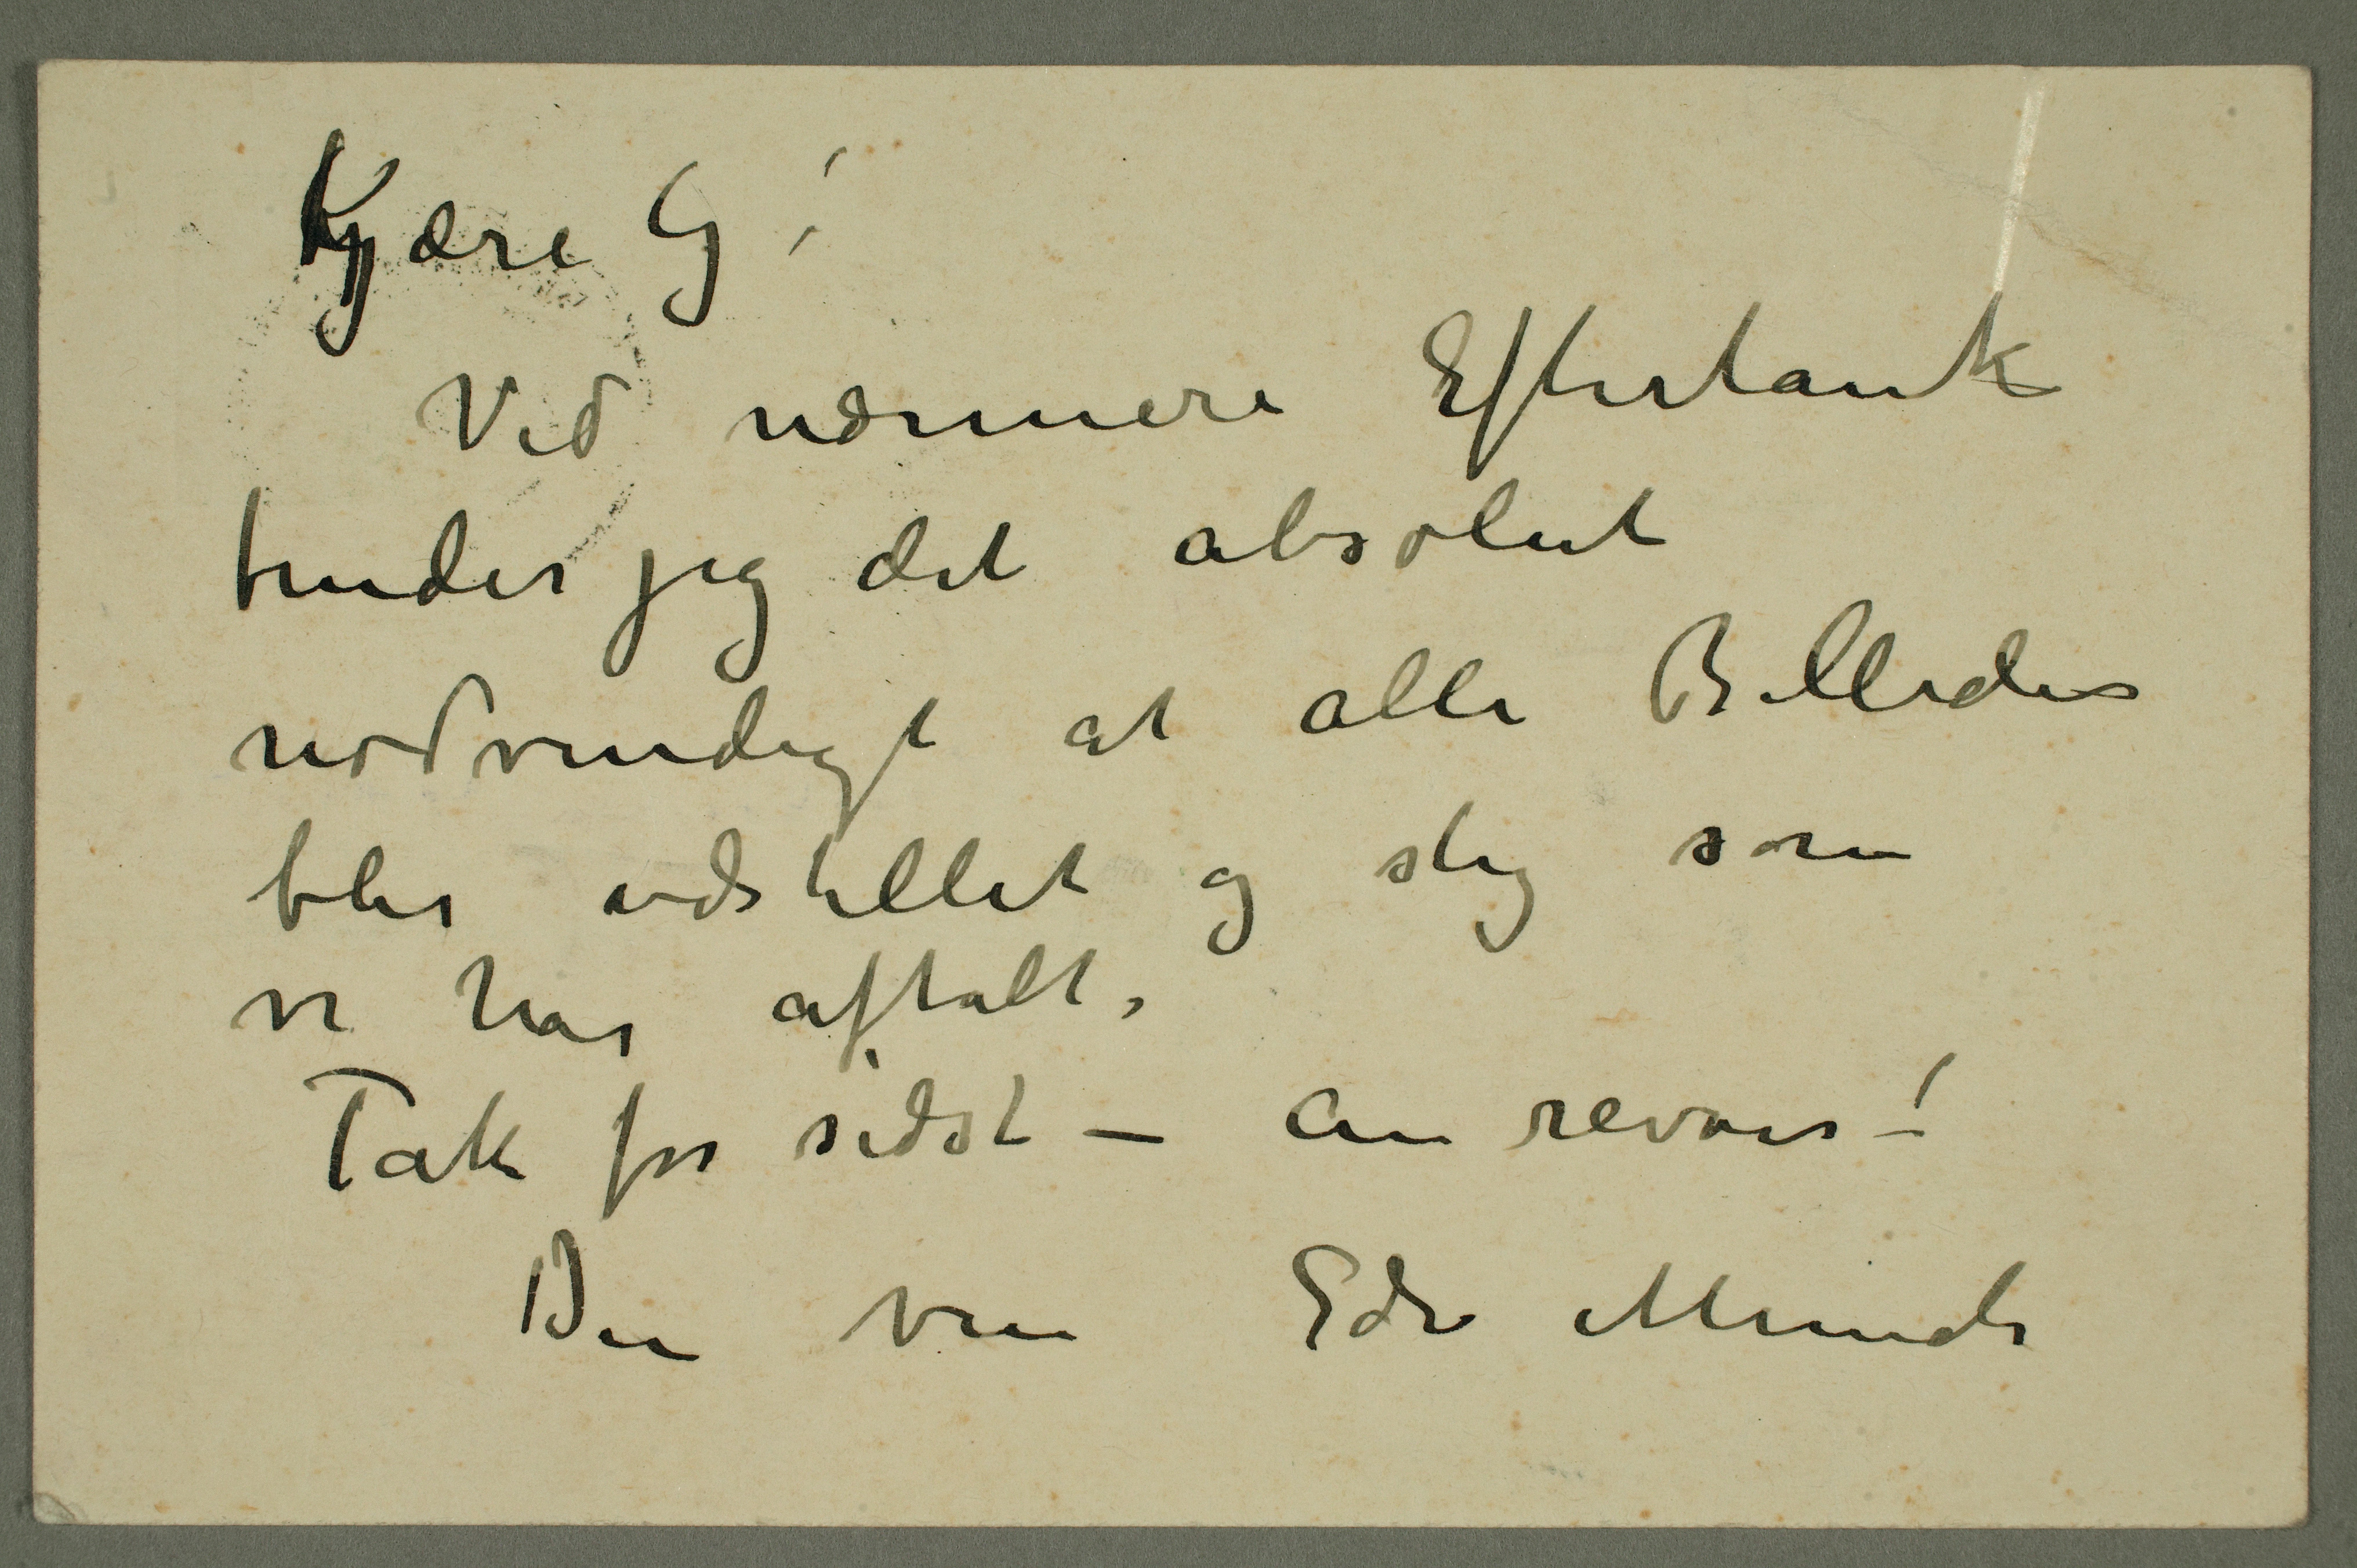 Kjære G!
Ved nærmere Eftertanke
finder jeg det absolut
nødvendigt at alle Billeder
blir udstillet og slig som
vi har aftalt.
Tak for sidst – au revoir!
Din ven Edv Munch